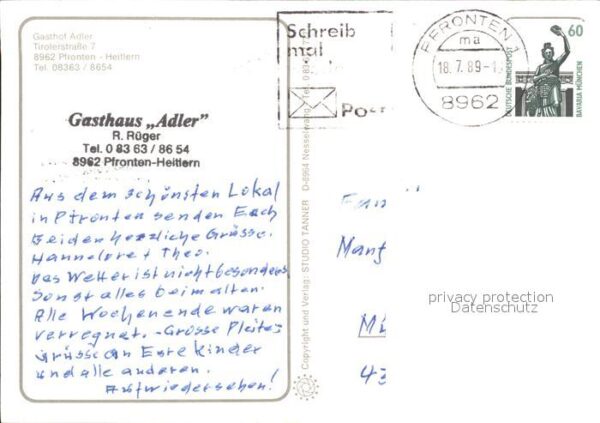 Gasthof Adler
Tirolerstraße 7
8962 Pfronten - Heitlern
Tel. 08363 / 8654
Gasthaus „Adler"
R. Rüger
Tel. 0 83 63 / 86 54
8962 Pfronten-Heitlern
Aus dem schönsten Lokal
in Pfronten senden Euch
beiden herzliche Grüsse.
Hannelore + Theo.
Das Wetter ist nicht besonders
Sonst alles beim alten.
Alle Wochenende waren
verregnet. - Grosse Pleite -
Grüsse an Eure Kinder
und alle anderen.
Aufwiedersehen!
Copyright und Verlag: STUDIO TANNER D-8964 Nesselwang Tel. 0 83
Schreib
mal
Po
PFRONTEN 1
ma
18.7.89-1
8962
60
DEUTSCHE BUNDESPOST
BAVARIA MÜNCHEN
Fam
Mang
Mü
43
privacy protection
Datenschutz